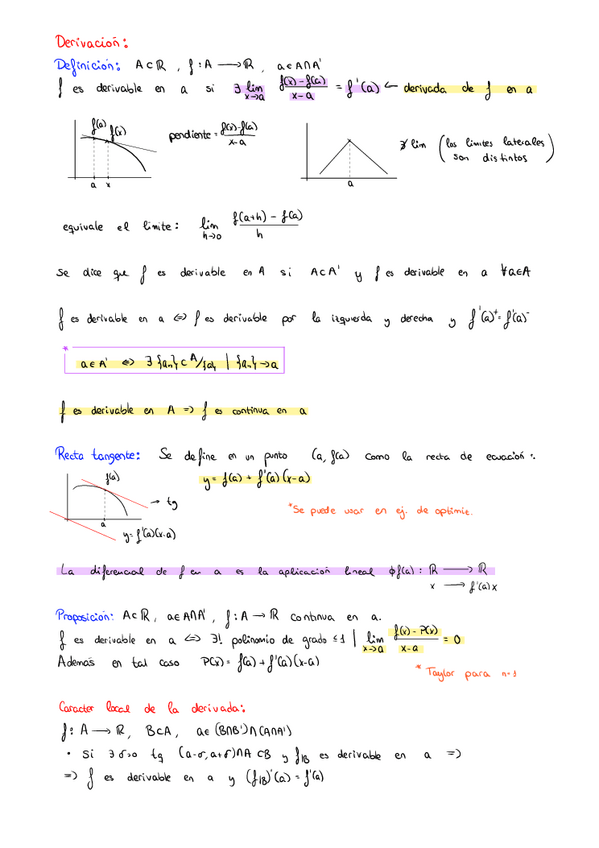 Derivación:
Definición: A⊂ℝ, f:A→ℝ, a∈A∩A'
f es derivable en a si ∃ lim x→a (f(x)-f(a))/(x-a) = f'(a) ← derivada de f en a
f(a) f(x)
pendiente = (f(x)-f(a))/(x-a)
∄ lim (los límites laterales son distintos)
a x
a
equivale el límite: lim h→0 (f(a+h) - f(a))/h
Se dice que f es derivable en A si A⊂A' y f es derivable en a ∀a∈A
f es derivable en a ⇔ f es derivable por la izquierda y derecha y f'(a)⁺ = f'(a)⁻
* a∈A' ⇔ ∃{aₙ}⊂A/{a} | {aₙ}→a
f es derivable en A => f es continua en a
Recta tangente: Se define en un punto (a, f(a)) como la recta de ecuación:
y = f(a) + f'(a)(x-a)
f(a)
→ tg
*Se puede usar en ej. de optimiz.
a
y = f'(a)(x-a)
La diferencial de f en a es la aplicación lineal φf(a): ℝ → ℝ
x → f'(a)x
Proposición: A⊂ℝ, a∈A∩A', f:A→ℝ continua en a.
f es derivable en a ⇔ ∃! polinomio de grado ≤1 | lim x→a (f(x) - P(x))/(x-a) = 0
Además en tal caso P(x) = f(a) + f'(a)(x-a)
* Taylor para n=1
Caracter local de la derivada:
f:A→ℝ, B⊂A, a∈(B∩B')∩(A∩A')
• Si ∃δ>0 tq (a-δ, a+δ)∩A ⊂B y f|B es derivable en a =>
=> f es derivable en a y (f|B)'(a) = f'(a)